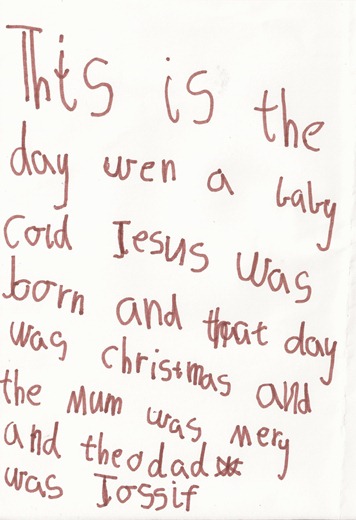 This is the
day wen a baby
cold Jesus was
born and that day
was christmas and
the mum was mery
and the dad
was Jossif